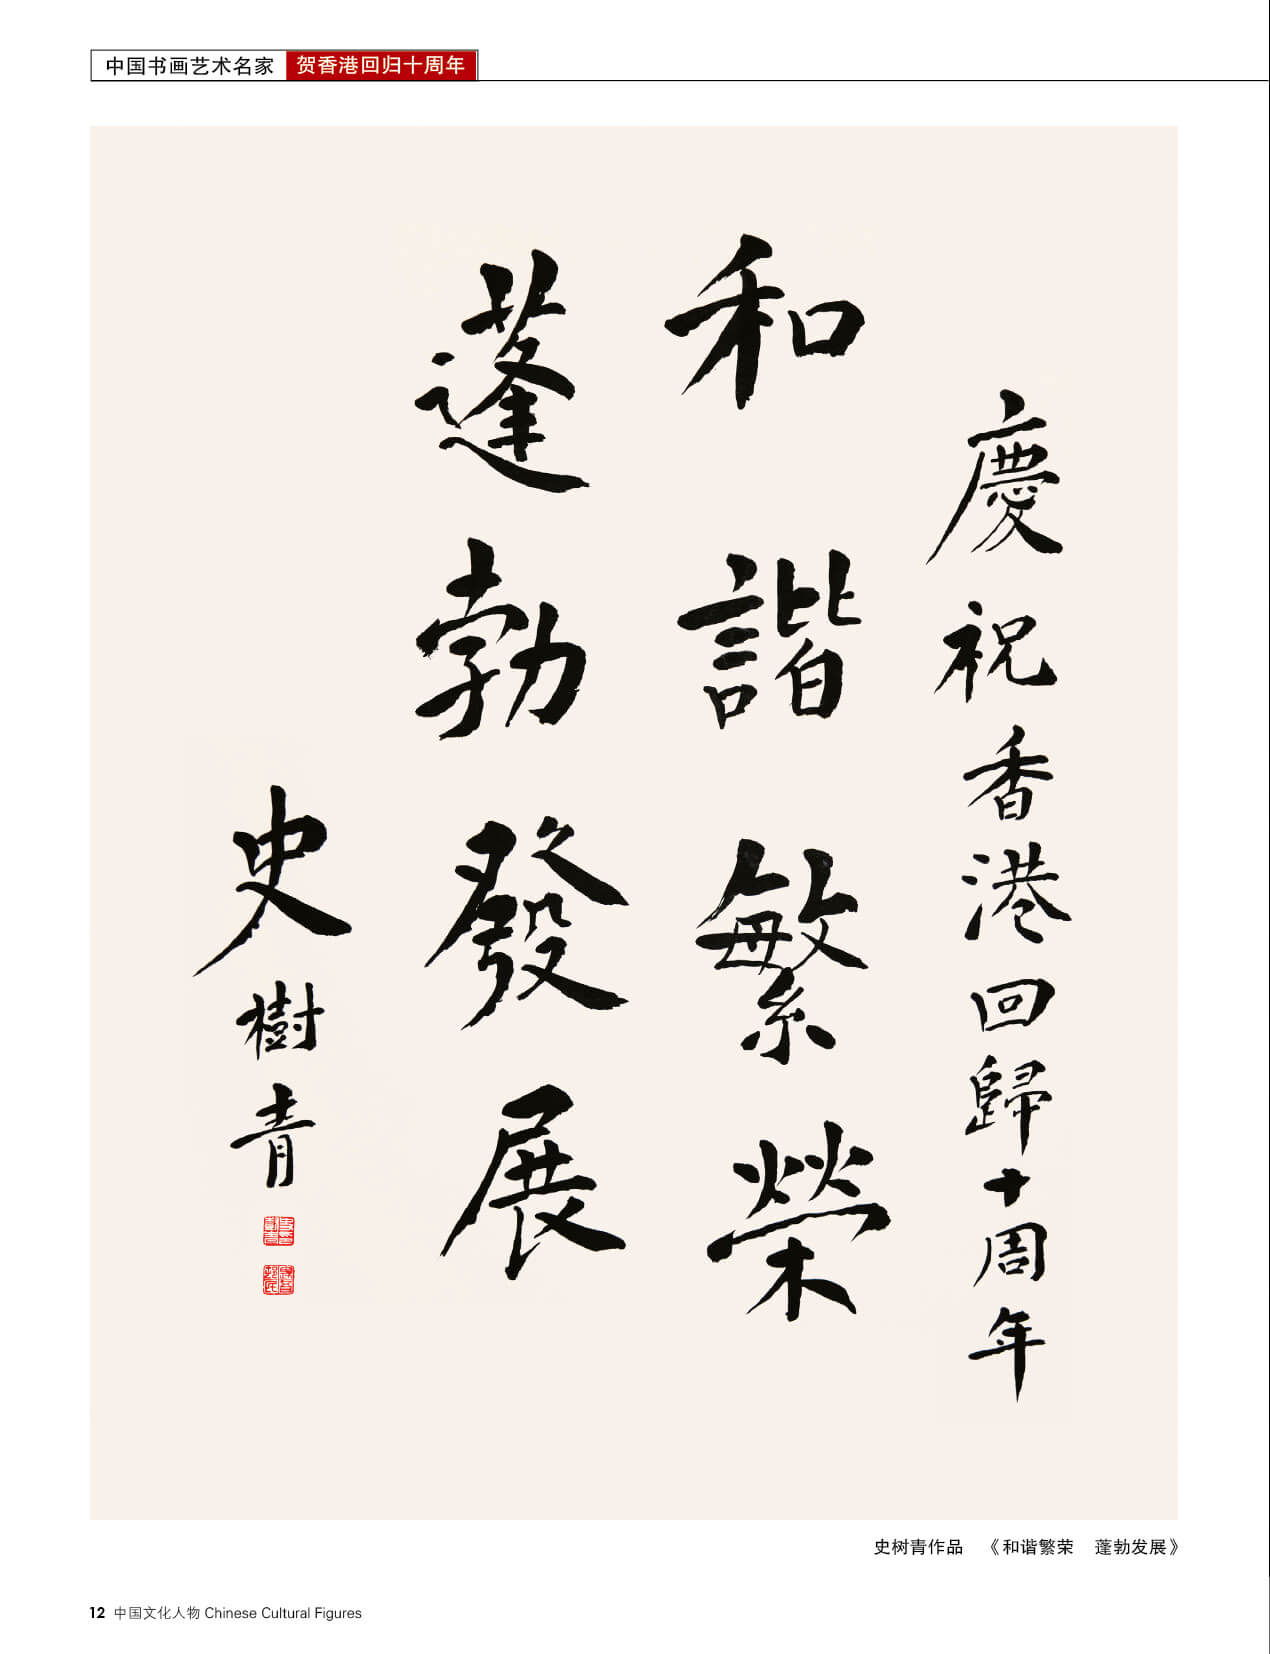 中国书画艺术名家 贺香港回归十周年
慶祝香港回歸十周年
和諧繁榮
蓬勃發展
史樹青
史树青作品 《和谐繁荣 蓬勃发展》
12 中国文化人物 Chinese Cultural Figures